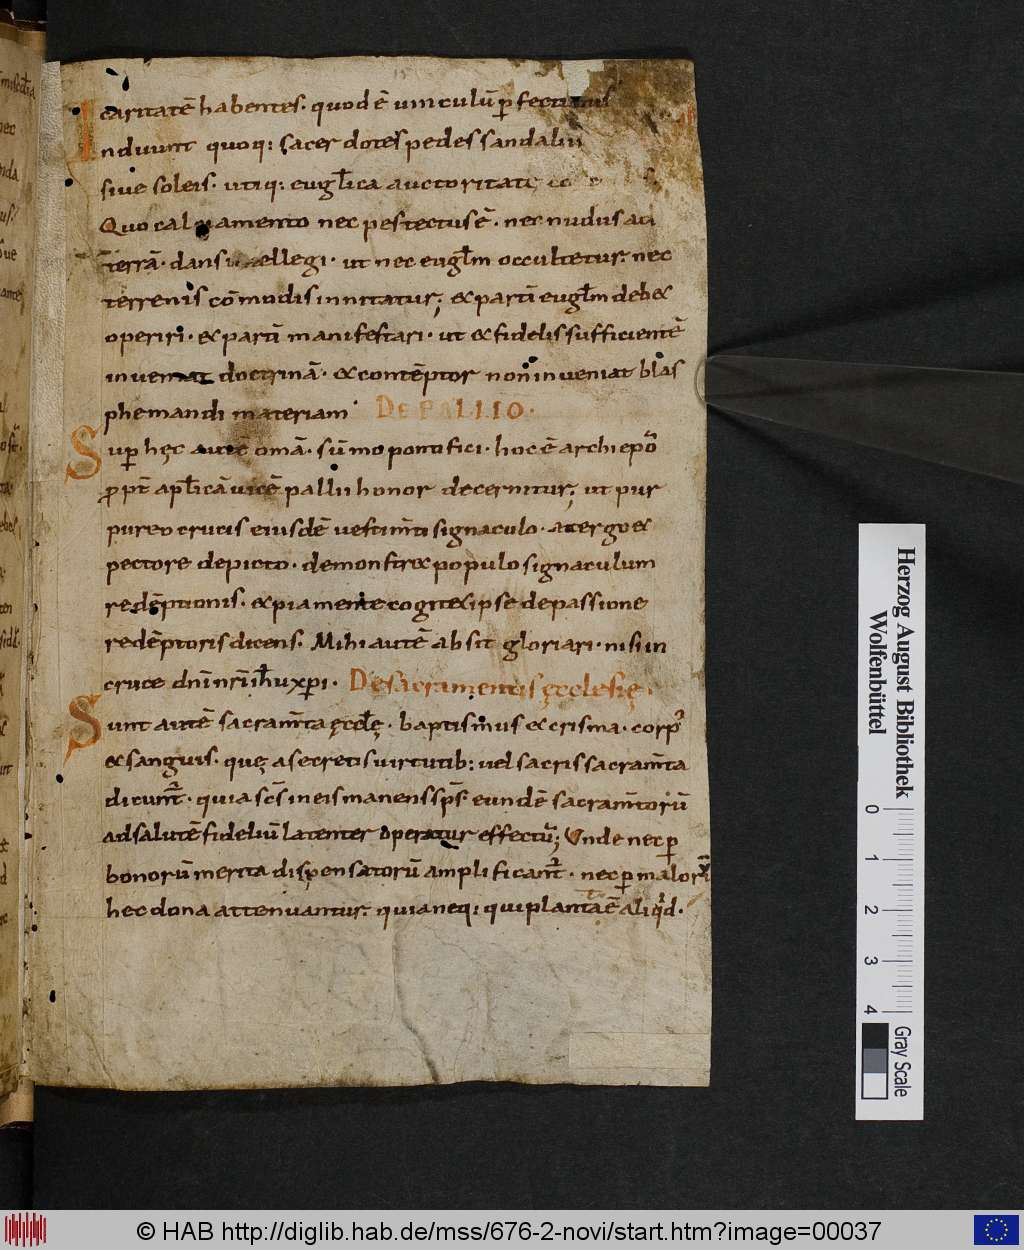 caritatē habentes. quod ē uinculū ꝑfectionis
Induunt quoq: sacerdotes pedes sandaliis
siue soleis. utiq: eugl̄ica auctoritate
Quo calciamento nec pes tectus ē. nec nudus ad
terrā. dans intellegi. ut nec eugl̄m occultetur. nec
terrenis cōmodis innitatur; & partī eugl̄m deb&
operiri. & partī manifestari. ut & fidelis sufficientē
inueniat doctrinā. & contēptor non inueniat blas
phemandi materiam. De Pallio.
Suꝑ hęc autē omā. sūmo pontifici. hoc ē archiepo
ꝓpt̄ apl̄icā uicē pallii honor decernitur; ut pur
pureo crucis eiusdē uestim̄ti signaculo. a tergo &
pectore depicto. demonstr& populo signaculum
redēptionis. & pia mente cogit& ipse de passione
redēptoris dicens. Mihi autē absit gloriari. nisi in
cruce dn̄i nr̄i ih̄u xp̄i. De sacramentis ęcclesię.
Sunt autē sacram̄ta ęccl̄ę. baptismus & crisma. corp᾿
& sanguis. quę a secretis uirtutib: uel sacris sacram̄ta
dicunt᷑. quia sc̄s in eis manens sp̄s. eundē sacram̄torū
ad salutē fideliū latenter operatur effectū; Unde nec ꝑ
bonorū merita dispensatorū amplificant᷑. nec ꝑ malorū
hec dona attenuantur. quia neq: qui plantat ē aliqͥd.
Herzog August Bibliothek
Wolfenbüttel
0 1 2 3 4
Gray Scale
© HAB http://diglib.hab.de/mss/676-2-novi/start.htm?image=00037